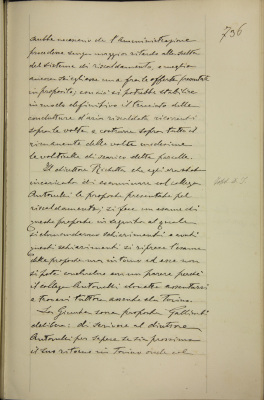 736
direbbe massimo che l'Amministrazione
prendesse senza maggior ritardo alla scelta
del sistema di riscaldamento, o meglio
ancora scegliesse una fra le offerte presentate
in proposito, con ciò si potrebbe stabilire
in modo definitivo il tracciato delle
condutture d'aria riscaldata
sopra le volte a costruire sopra tutto il
rimanente delle volte medesime
le voltine di scarico della piccola.
Il direttore che già erasi
incaricato di esaminare col collega
Antonelli le proposte presentate pel
riscaldamento, si fece un esame di
queste proposte in seguito al quale
si domandarono schiarimenti e avuti
questi schiarimenti si riprese l'esame
delle proposte ma intorno ad esse non
si potè concludere con un parere perchè
il collega Antonelli dovette assentarsi
e trovasi tuttora assente da Torino.
La Giunta, sona proposta
delibera: di scrivere al direttore
Antonelli per sapere se sia prossimo
il suo ritorno in Torino onde col